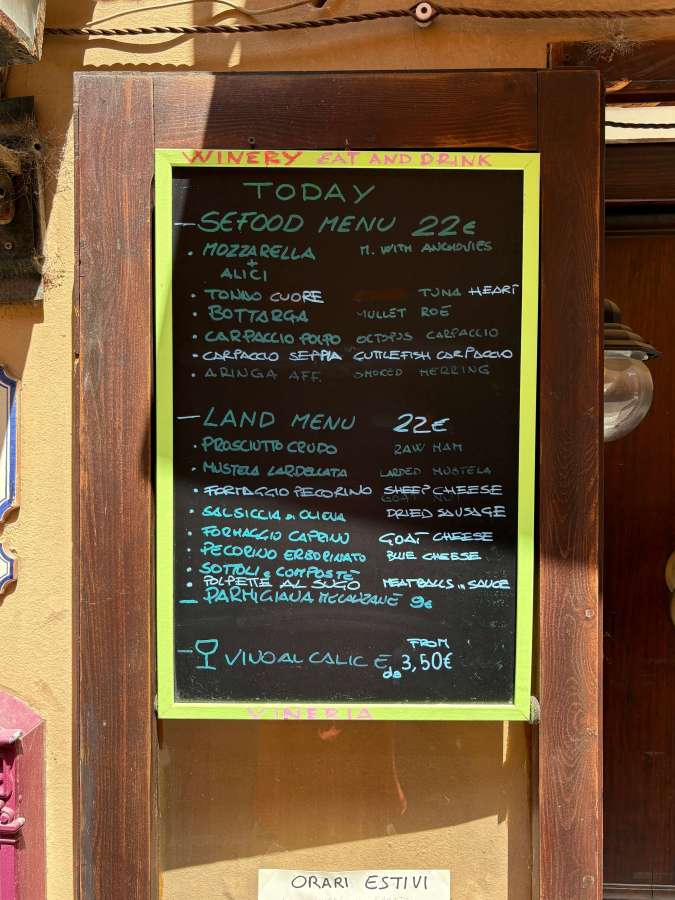 WINERY EAT AND DRINK
TODAY
— SEFOOD MENU 22€
• MOZZARELLA + ALICI M. WITH ANCHOVIES
• TONNO CUORE TUNA HEART
• BOTTARGA MULLET ROE
• CARPACCIO POLPO OCTOPUS CARPACCIO
• CARPACCIO SEPPIA CUTTLEFISH CARPACCIO
• ARINGA AFF. SMOKED HERRING
— LAND MENU 22€
• PROSCIUTTO CRUDO RAW HAM
• MUSTELA LARDELLATA LARDED MUSTELA
• FORMAGGIO PECORINO SHEEP CHEESE
• SALSICCIA di OLIENA DRIED SAUSAGE
• FORMAGGIO CAPRINO GOAT CHEESE
• PECORINO ERBORINATO BLUE CHEESE
• SOTTOLI e COMPOSTE
• POLPETTE AL SUGO MEATBALLS in SAUCE
— PARMIGIANA MELANZANE 9€
FROM
— VINO AL CALICE da 3,50€
VINERIA
ORARI ESTIVI